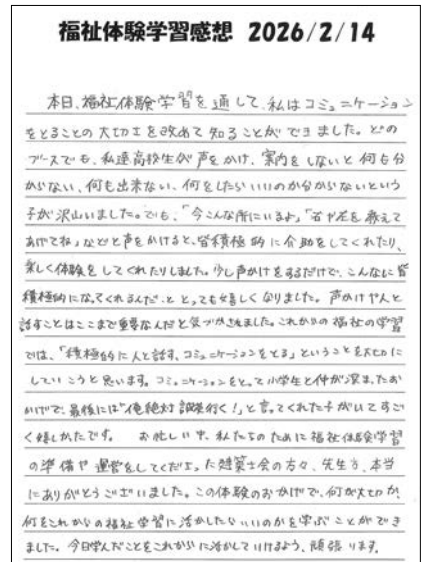 福祉体験学習感想 2026/2/14
本日、福祉体験学習を通して、私はコミュニケーション
をとることの大切さを改めて知ることができました。どの
ブースでも、私達高校生が声をかけ、案内をしないと何も分
からない、何も出来ない、何をしたらいいのか分からないという
子が沢山いました。でも、「今こんな所にいるよ」「右や左を教えて
あげてね」などと声をかけると、皆積極的に介助をしてくれたり、
楽しく体験をしてくれたりしました。少し声かけをするだけで、こんなに皆
積極的になってくれるんだ、ととっても嬉しくなりました。声かけや人と
話すことはここまで重要なんだと気づかされました。これからの福祉の学習
では、「積極的に人と話す、コミュニケーションをとる」ということを大切に
していこうと思います。コミュニケーションをとって小学生と仲が深まったお
かげで、最後には"俺絶対 行く!"と言ってくれた子がいてすご
く嬉しかったです。 お忙しい中、私たちのために福祉体験学習
の準備や運営をしてくださった建築士会の方々、先生方、本当
にありがとうございました。この体験のおかげで、何が大切か、
何をこれからの福祉学習に活かしたらいいのかを学ぶことができ
ました。今日学んだことをこれからに活かしていけるよう、頑張ります。